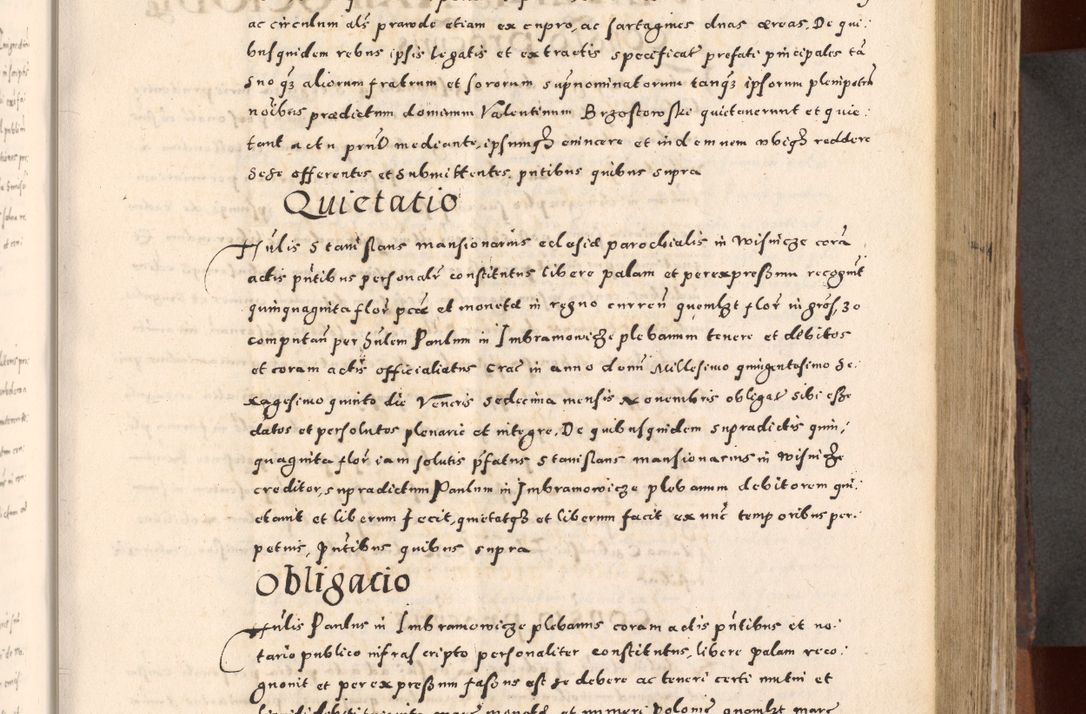 ac circulum als prawode etiam ex cupro, ac sartagines duas æreas. De qui-
busquidem rebus ipsis legatis et extractis specificat prefati principales tã
suo q3 aliorum fratrum et sororum supnominatorum tanq3 ipsorum plenipoten
noĩbus prædictum dominum Valentinum Brzostowski quietauerunt et quie-
tant actu pnti mediante, ipsumq3 euincere et indemnem ubiq3 reddere
sese offerentes et submittentes, pntibus quibus supra
Quietatio
Hũlis Stanislaus mansionarius eclesiæ parochialis in Wisnicze corã
actis pñtibus personalr constitutus libere palam et per expressum recognit
quinquaginta flor pcæ et monetæ in regno curren quemlzt flor in gross, 30
computan per Hũlem Paulum in Imbramowicze plebanum tenere et debitos
et coram actis officialiatus Crac in anno domi Millesimo quingentesimo se-
xagesimo quinto die Veneris sedecima mensis Nouembris obligat sibi esse
datos et persolutos plenarie et integre. De quibusquidem supradictis quin-
quaginta flor iam solutis pfatus Stanislaus mansionarius in Wisnicze
creditor, supradictum Paulum in Imbramowicze plebanum debitorem qui-
etauit et liberum fecit, quietatq3 et liberum facit ex nunc temporibus per-
petuis, pñtibus quibus supra
Obligacio
Hũlis Paulus in Imbramowicze plebanus coram actis pñtibus et no-
tario publico infrascripto personaliter constitutus, libere palam reco-
gnouit et per expressum fassus est se debere ac teneri certi mutui et
marc monetæ et numeri Poloniæ quamlzt marc